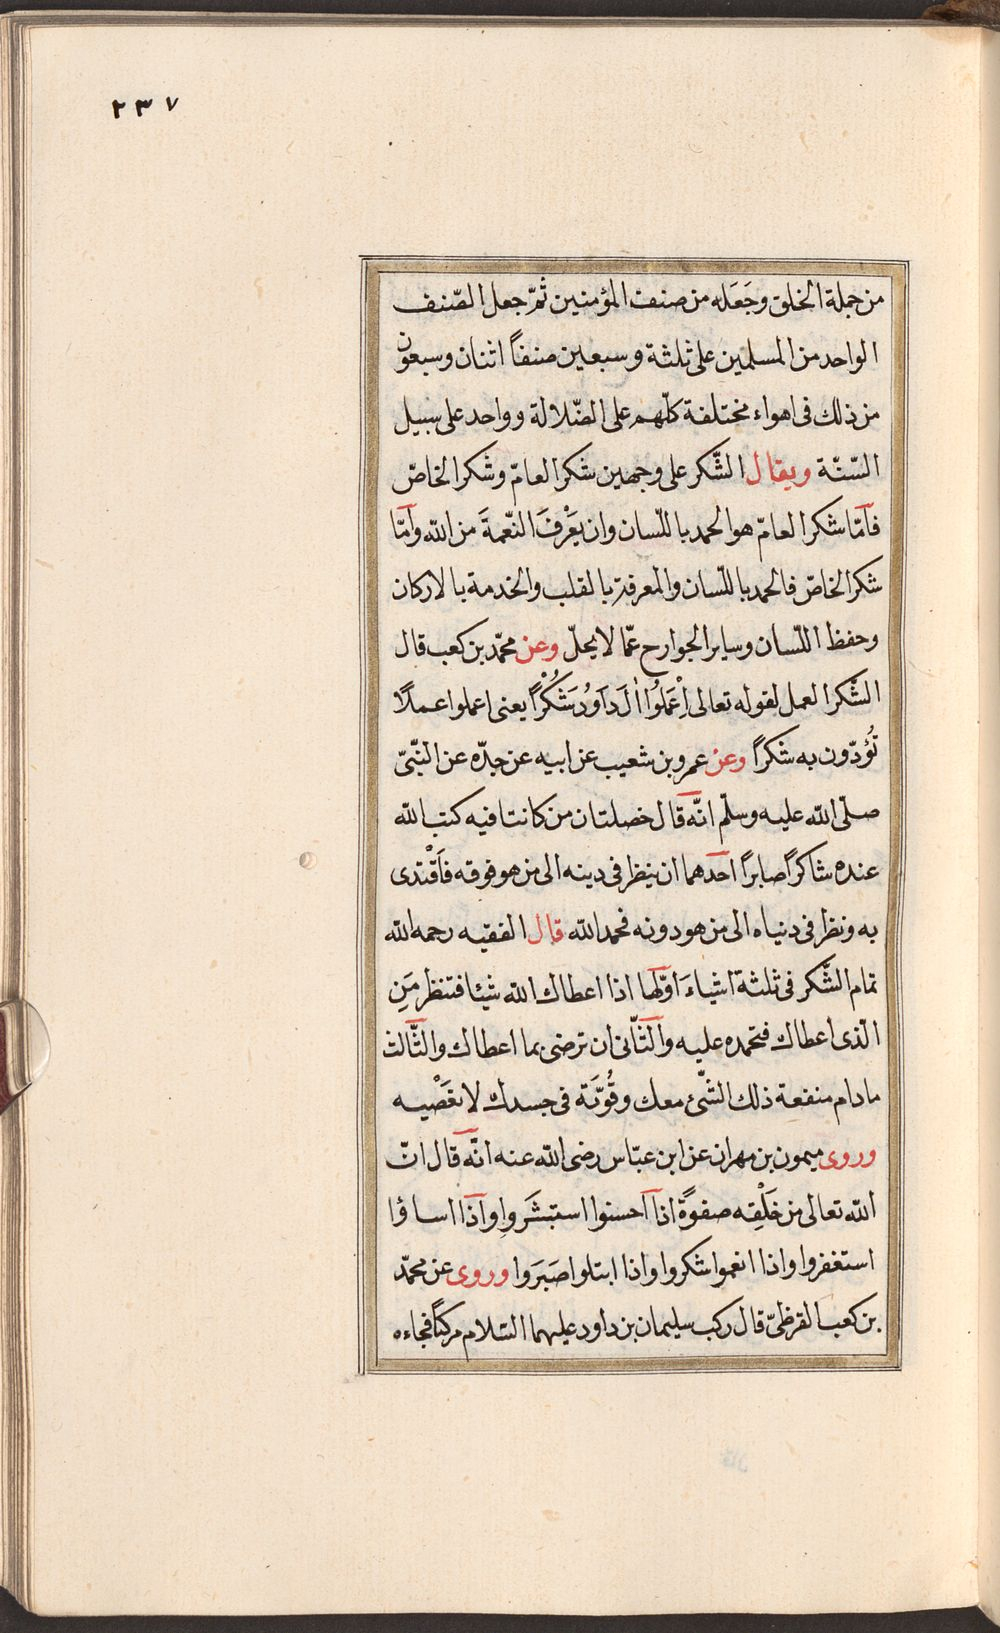 ٢٣٧
من جملة الخلق وجَعَله من صنف المؤمنين ثمّ جعل الصّنف
الواحد من المسلمين على ثلثة وسبعين صنفاً اثنان وسبعون
من ذلك فى اهواء مختلفة كلّهم على الضّلالة وواحد على سبيل
السّنّة ويقال الشّكر على وجهين شكر العامّ وشكر الخاصّ
فامّا شكر العامّ هو الحمد باللّسان وان يَعْرفَ النّعمةَ من الله وامّا
شكر الخاصّ فالحمد باللّسان والمعرفة بالقلب والخدمة بالاركان
وحفظ اللّسان وساير الجوارح عمّا لا يحلّ وعن محمّد بن كعب قال
الشّكر العمل لقوله تعالى اِعْمَلُوا اٰلَ دَاوُدَ شُكْرًا يعنى اعملوا عملًا
تُؤدّون به شكراً وعن عمرو بن شعيب عن ابيه عن جدّه عن النّبىّ
صلّى الله عليه وسلّم انّه قال خصلتان من كانتا فيه كتب الله
عنده شاكراً صابراً احدهما ان ينظر فى دينه الى من هو فوقه فاَقْتدى
به ونظر فى دنياه الى من هو دونه فحمد الله قال الفقيه رحمه الله
تمام الشّكر فى ثلثة اشياءَ اوّلها اذا اعطاك الله شيئا فتنظر مَنِ
الّذى اعطاك فتحمده عليه والثّانى ان ترضى بما اعطاك والثّالث
مادام منفعة ذلك الشّىء معك وقُوّتَه فى جسدك لا تَعْصيه
وروى ميمون بن مهران عن ابن عبّاس رضى الله عنه انّه قال انّ
الله تعالى من خَلْقِه صفوةً اذا احسنوا استبشَروا واذا اساؤا
استغفروا واذا انعموا شكروا واذا ابتلوا صَبَروا وروى عن محمّد
بن كعب القرظىّ قال ركب سليمان بن داود عليهما السّلام مركبًا فجاءه